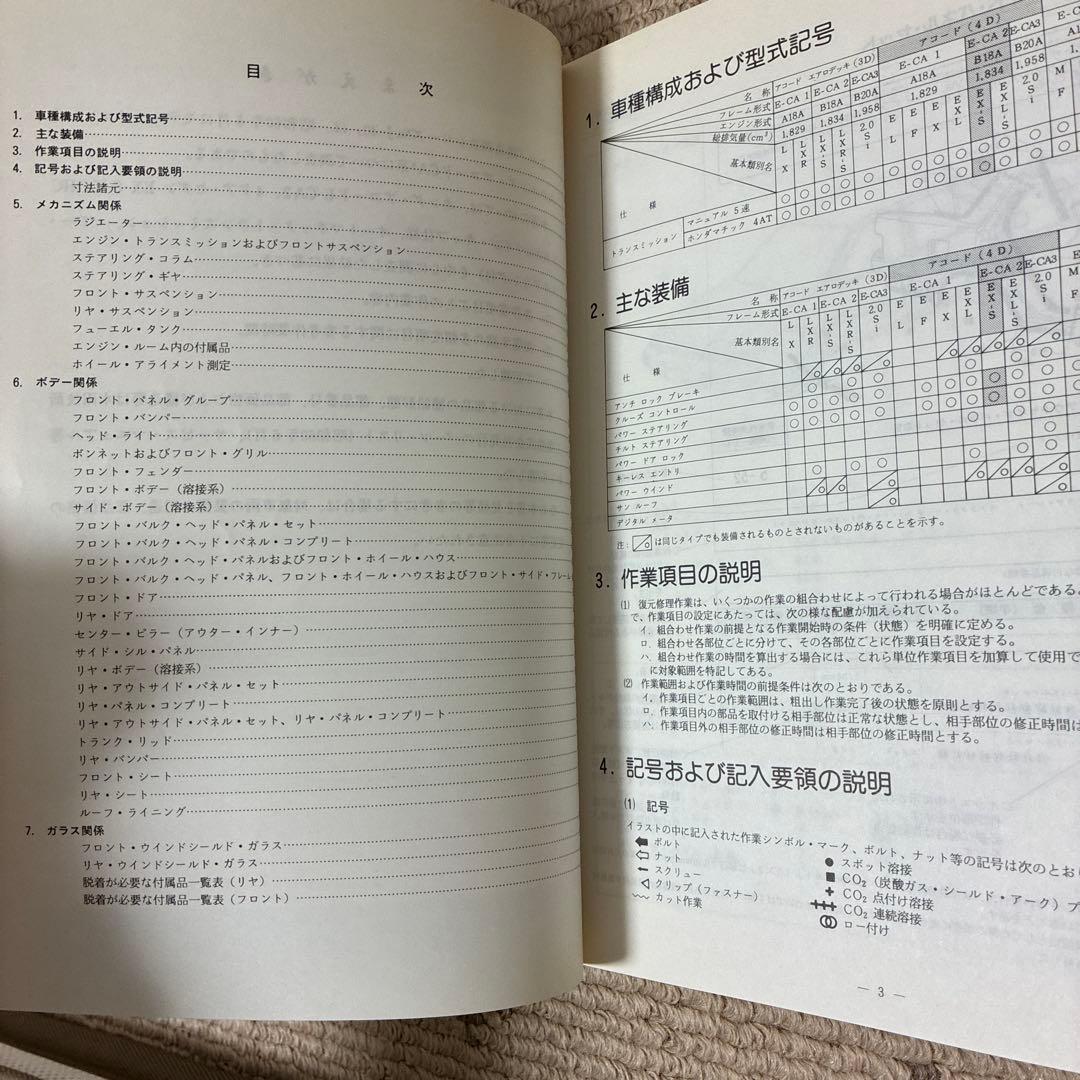 目 次
1. 車種構成および型式記号
2. 主な装備
3. 作業項目の説明
4. 記号および記入要領の説明
寸法諸元
5. メカニズム関係
ラジエーター
エンジン・トランスミッションおよびフロントサスペンション
ステアリング・コラム
ステアリング・ギヤ
フロント・サスペンション
リヤ・サスペンション
フューエル・タンク
エンジン・ルーム内の付属品
ホイール・アライメント測定
6. ボデー関係
フロント・パネル・グループ
フロント・バンパー
ヘッド・ライト
ボンネットおよびフロント・グリル
フロント・フェンダー
フロント・ボデー（溶接系）
サイド・ボデー（溶接系）
フロント・バルク・ヘッド・パネル・セット
フロント・バルク・ヘッド・パネル・コンプリート
フロント・バルク・ヘッド・パネルおよびフロント・ホイール・ハウス
フロント・バルク・ヘッド・パネル、フロント・ホイール・ハウスおよびフロント・サイド・フレーム
フロント・ドア
リヤ・ドア
センター・ピラー（アウター・インナー）
サイド・シル・パネル
リヤ・ボデー（溶接系）
リヤ・アウトサイド・パネル・セット
リヤ・パネル・コンプリート
リヤ・アウトサイド・パネル・セット、リヤ・パネル・コンプリート
トランク・リッド
リヤ・バンパー
フロント・シート
リヤ・シート
ルーフ・ライニング
7. ガラス関係
フロント・ウインドシールド・ガラス
リヤ・ウインドシールド・ガラス
脱着が必要な付属品一覧表（リヤ）
脱着が必要な付属品一覧表（フロント）
1. 車種構成および型式記号
名 称 アコード エアロデッキ（3D） アコード（4D）
フレーム形式 E-CA 1 E-CA 2 E-CA3 E-CA 1 E-CA 2 E-CA3
エンジン形式 A18A B18A B20A A18A B18A B20A
総排気量(cm³) 1,829 1,834 1,958 1,829 1,834 1,958
基本類別名 LX LXR-S LXR-S 2.0Si EL EF EX EXL EX-S EXL-S 2.0Si
仕 様
トランスミッション マニュアル 5速 ○
ホンダマチック 4AT ○
2. 主な装備
名 称 アコード エアロデッキ（3D） アコード（4D）
フレーム形式 E-CA 1 E-CA 2 E-CA3 E-CA 1 E-CA 2 E-CA3
基本類別名 LX LXR LXR-S 2.0Si EL EF EX EXL EX-S EXL-S 2.0Si
仕 様
アンチ ロック ブレーキ
クルーズ コントロール
パワー ステアリング
チルト ステアリング
パワー ドア ロック
キーレス エントリ
パワー ウインド
サン ルーフ
デジタル メータ
注：は同じタイプでも装備されるものとされないものがあることを示す。
3. 作業項目の説明
(1) 復元修理作業は、いくつかの作業の組合わせによって行われる場合がほとんどである。
で、作業項目の設定にあたっては、次の様な配慮が加えられている。
イ．組合わせ作業の前提となる作業開始時の条件（状態）を明確に定める。
ロ．組合わせ各部位ごとに分けて、その各部位ごとに作業項目を設定する。
ハ．組合わせ作業の時間を算出する場合には、これら単位作業項目を加算して使用で
に対象範囲を特記してある。
(2) 作業範囲および作業時間の前提条件は次のとおりである。
イ．作業項目ごとの作業範囲は、粗出し作業完了後の状態を原則とする。
ロ．作業項目内の部品を取付ける相手部位は正常な状態とし、相手部位の修正時間は
ハ．作業項目外の相手部位の修正時間は相手部位の修正時間とする。
4. 記号および記入要領の説明
(1) 記号
イラストの中に記入された作業シンボル・マーク、ボルト、ナット等の記号は次のとおり
ボルト
ナット
スクリュー
クリップ（ファスナー）
カット作業
● スポット溶接
■ CO₂（炭酸ガス・シールド・アーク）プ
CO₂ 点付け溶接
CO₂ 連続溶接
ロー付け
— 3 —